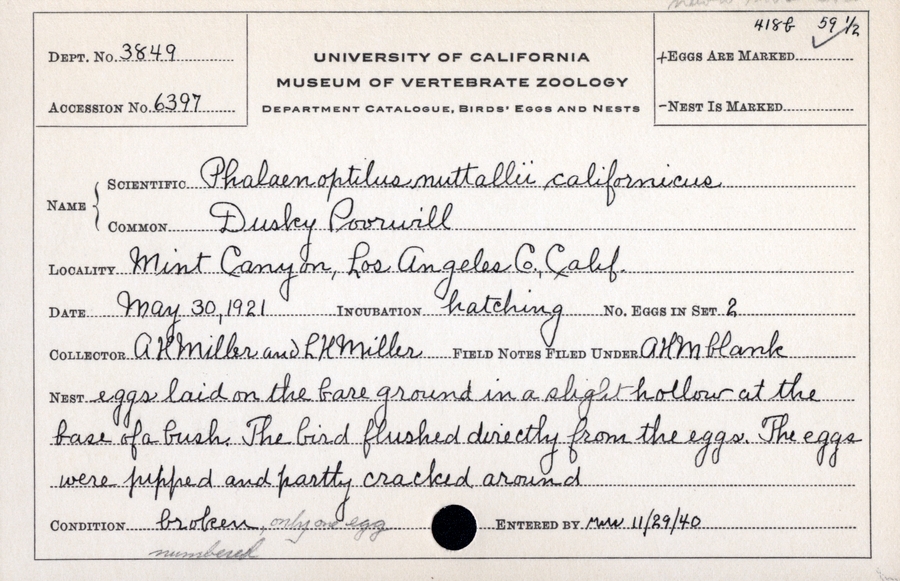 418b 59 1/2
Dept. No. 3849
UNIVERSITY OF CALIFORNIA
+Eggs Are Marked
MUSEUM OF VERTEBRATE ZOOLOGY
Accession No. 6397
Department Catalogue, Birds' Eggs and Nests
-Nest Is Marked
Name { Scientific Phalaenoptilus nuttallii californicus
Common Dusky Poorwill
Locality Mint Canyon, Los Angeles Co., Calif.
Date May 30, 1921 Incubation hatching No. Eggs in Set 2
Collector A H Miller and L H Miller Field Notes Filed Under AHM blank
Nest eggs laid on the bare ground in a slight hollow at the
base of a bush. The bird flushed directly from the eggs. The eggs
were pipped and partly cracked around
Condition broken, only one egg Entered by 11/29/40
numbered